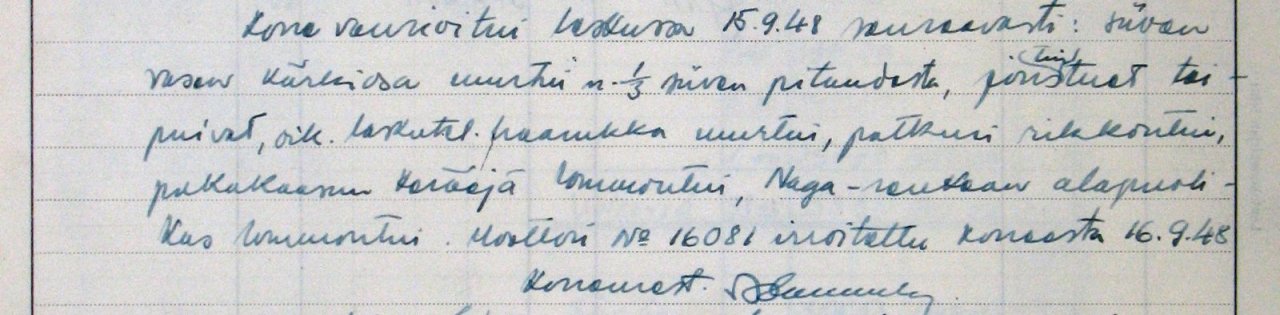 Kone vaurioitui laskussa 15.9.48 seuraavasti: siiven
vasen kärkiosa murtui n. 1/3 siiven pituudesta, jöristuet tai-
puivat, oik. laskutel. haarukka murtui, potkuri rikkoutui,
pakokaasun kerääjä lommoutui, Naga-renkaan alapuoli-
kas lommoutui. Moottori No 16081 irroitettu koneesta 16.9.48
Konemest.